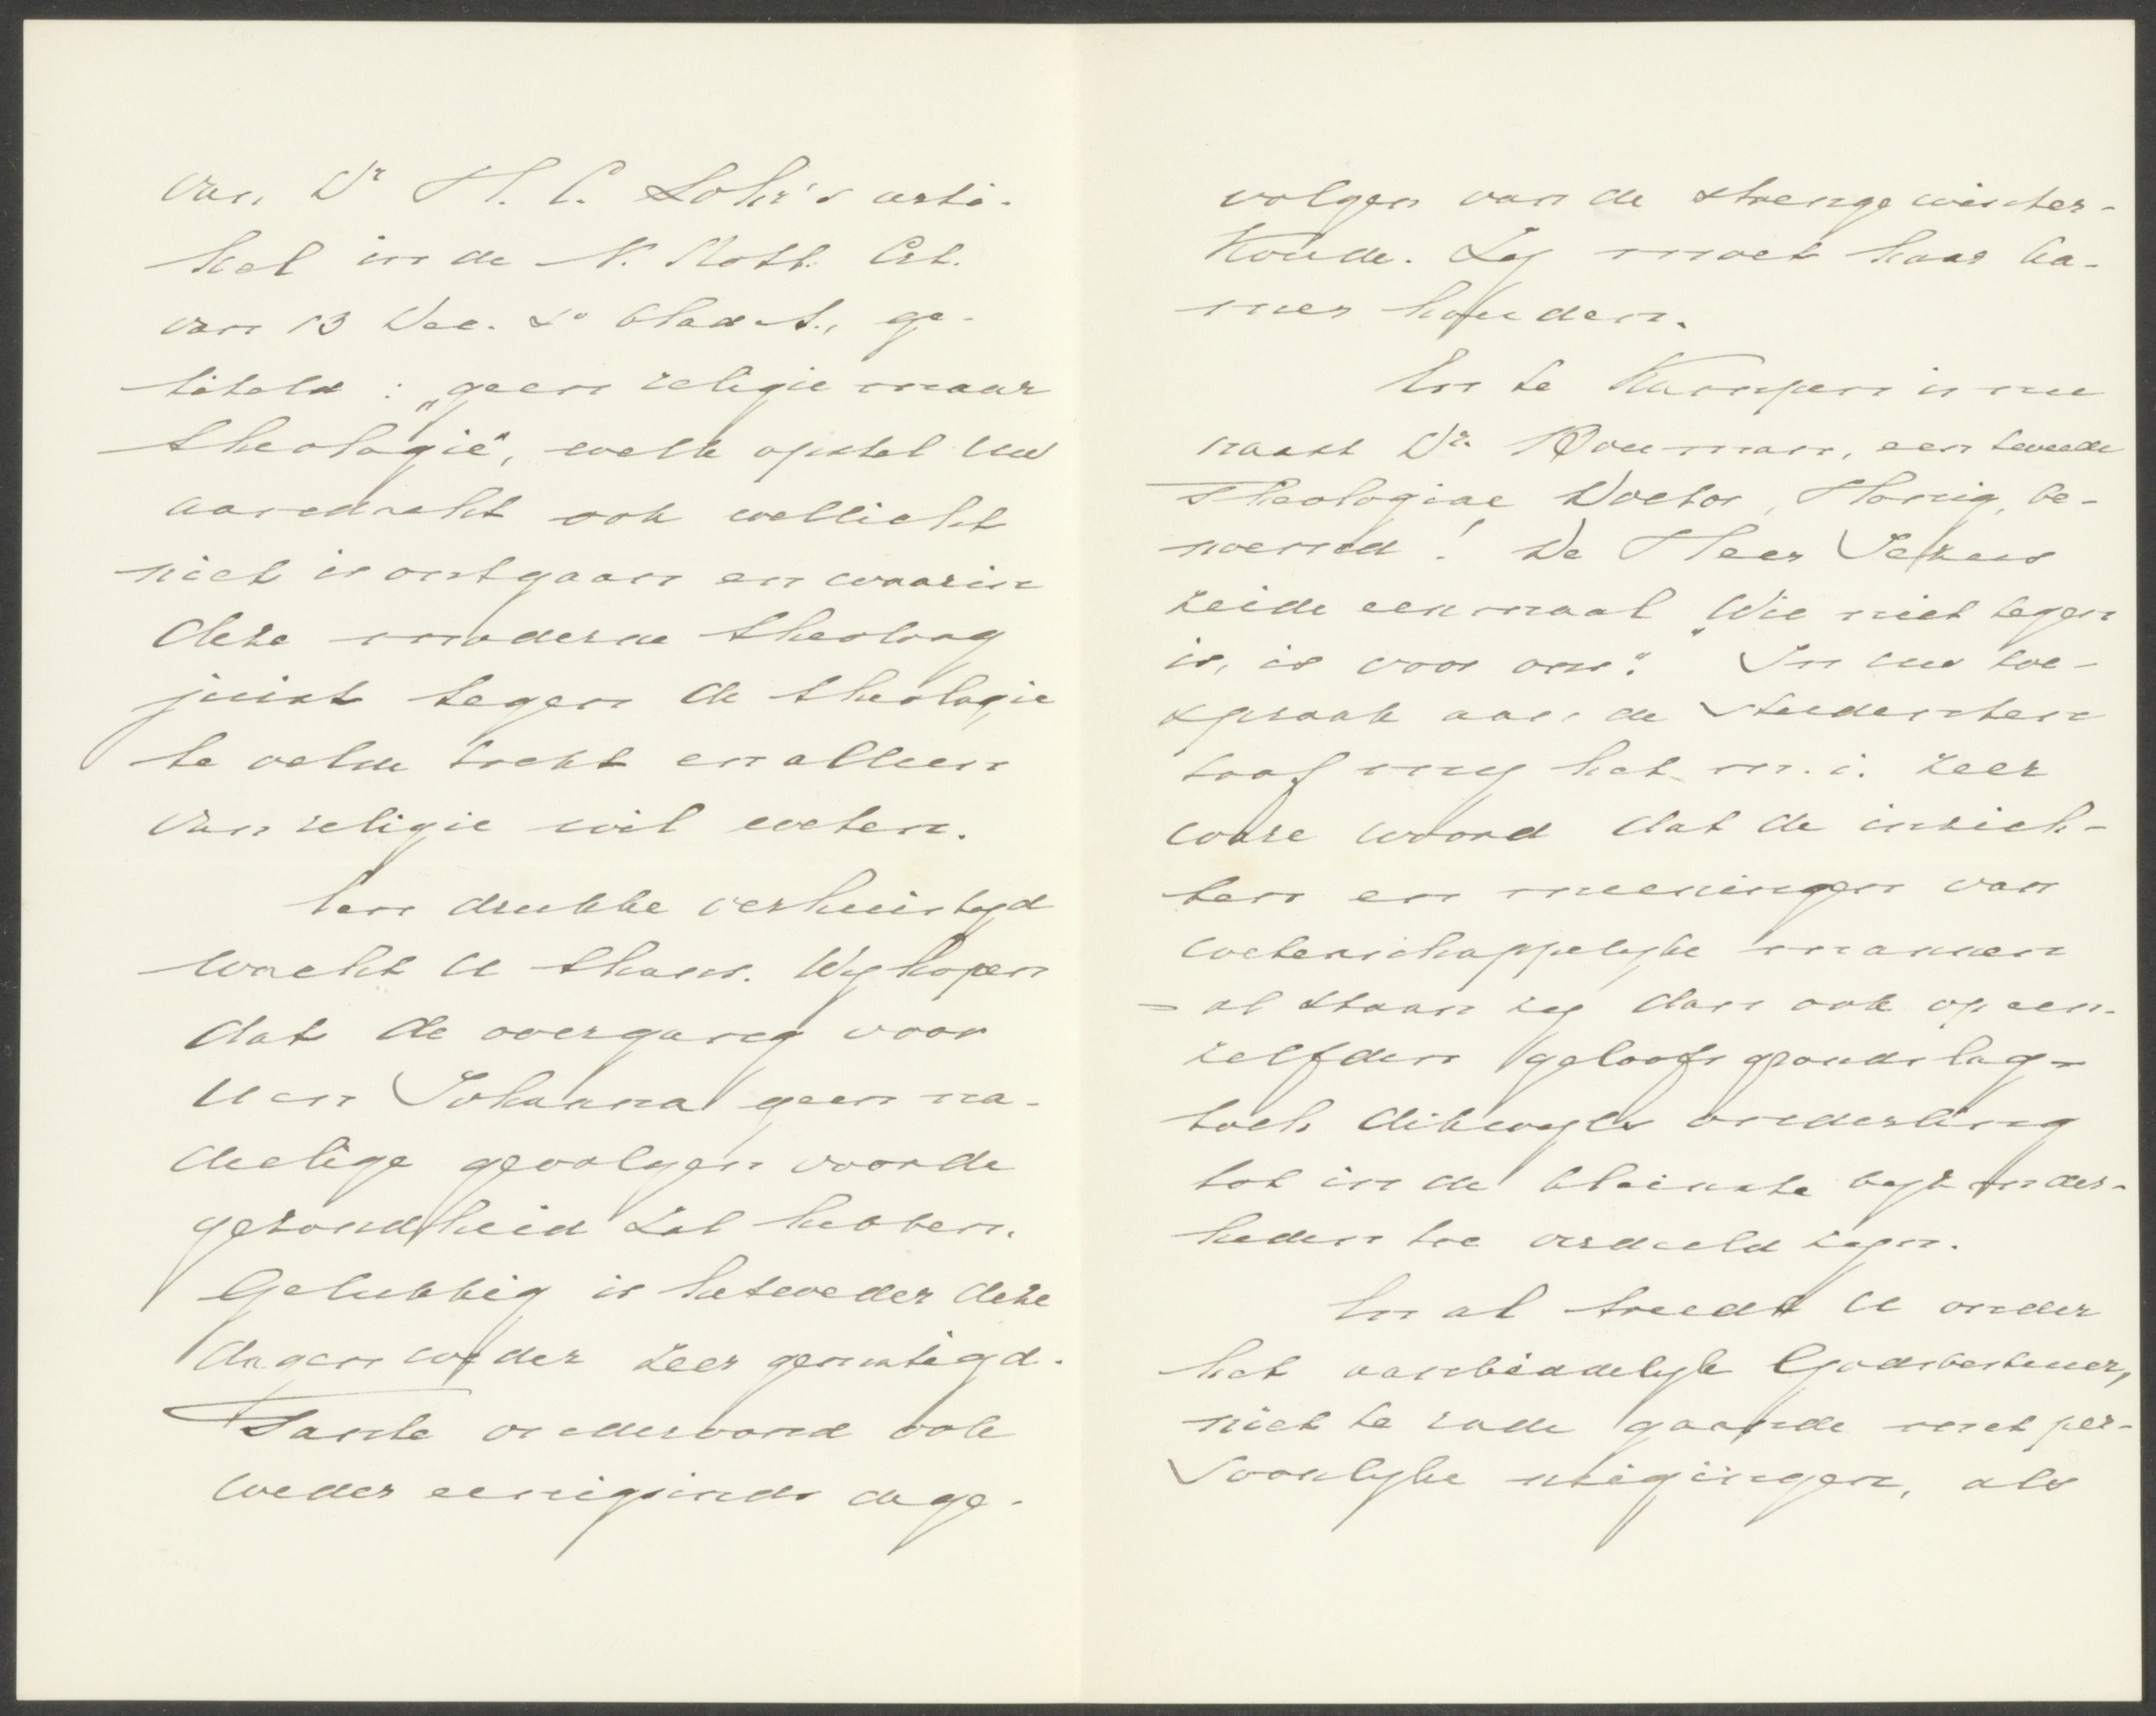 van Dr H. C. Lohr's arti-
kel in de N. Rott. Crt.
van 13 Dec. 2e blad A., ge-
titeld: „geen religie maar
theologie", welk opstel Uw
aandacht ook wellicht
niet is ontgaan en waarin
deze moderne theoloog
juist tegen de theologie
te velde trekt en alleen
van religie wil weten.
Een drukke verhuistyd
wacht U thans. Wy hopen
dat de overgang voor
U en Johanna geen na-
deelige gevolgen voor de
gezondheid zal hebben.
Gelukkig is het weder deze
dagen weder zeer gematigd.
Tante ondervond ook
weder eenigzinds de ge-
volgen van de strenge winter-
koude. Zy moet haar ka-
mer houden.
En te Kampen is nu
naast Dr. Bouwman, een tweede
Theologiae Doctor, Honig, be-
noemd! De Heer
zeide eenmaal „Wie niet tegen
is, is voor ons". In uw toe-
spraak aan de studenten
trof my het m. i. zeer
ware woord dat de inzich-
ten en meeningen van
wetenschappelyke mannen
- al staan zy dan ook op een-
zelfden geloofsgrondslag -
toch dikwyls onderling
tot in de kleinste byzonder-
heden toe verdeeld zyn.
En al treedt U onder
het aanbiddelyk Godsbestuur,
niet te rade gaande met per-
soonlyke neigingen, als